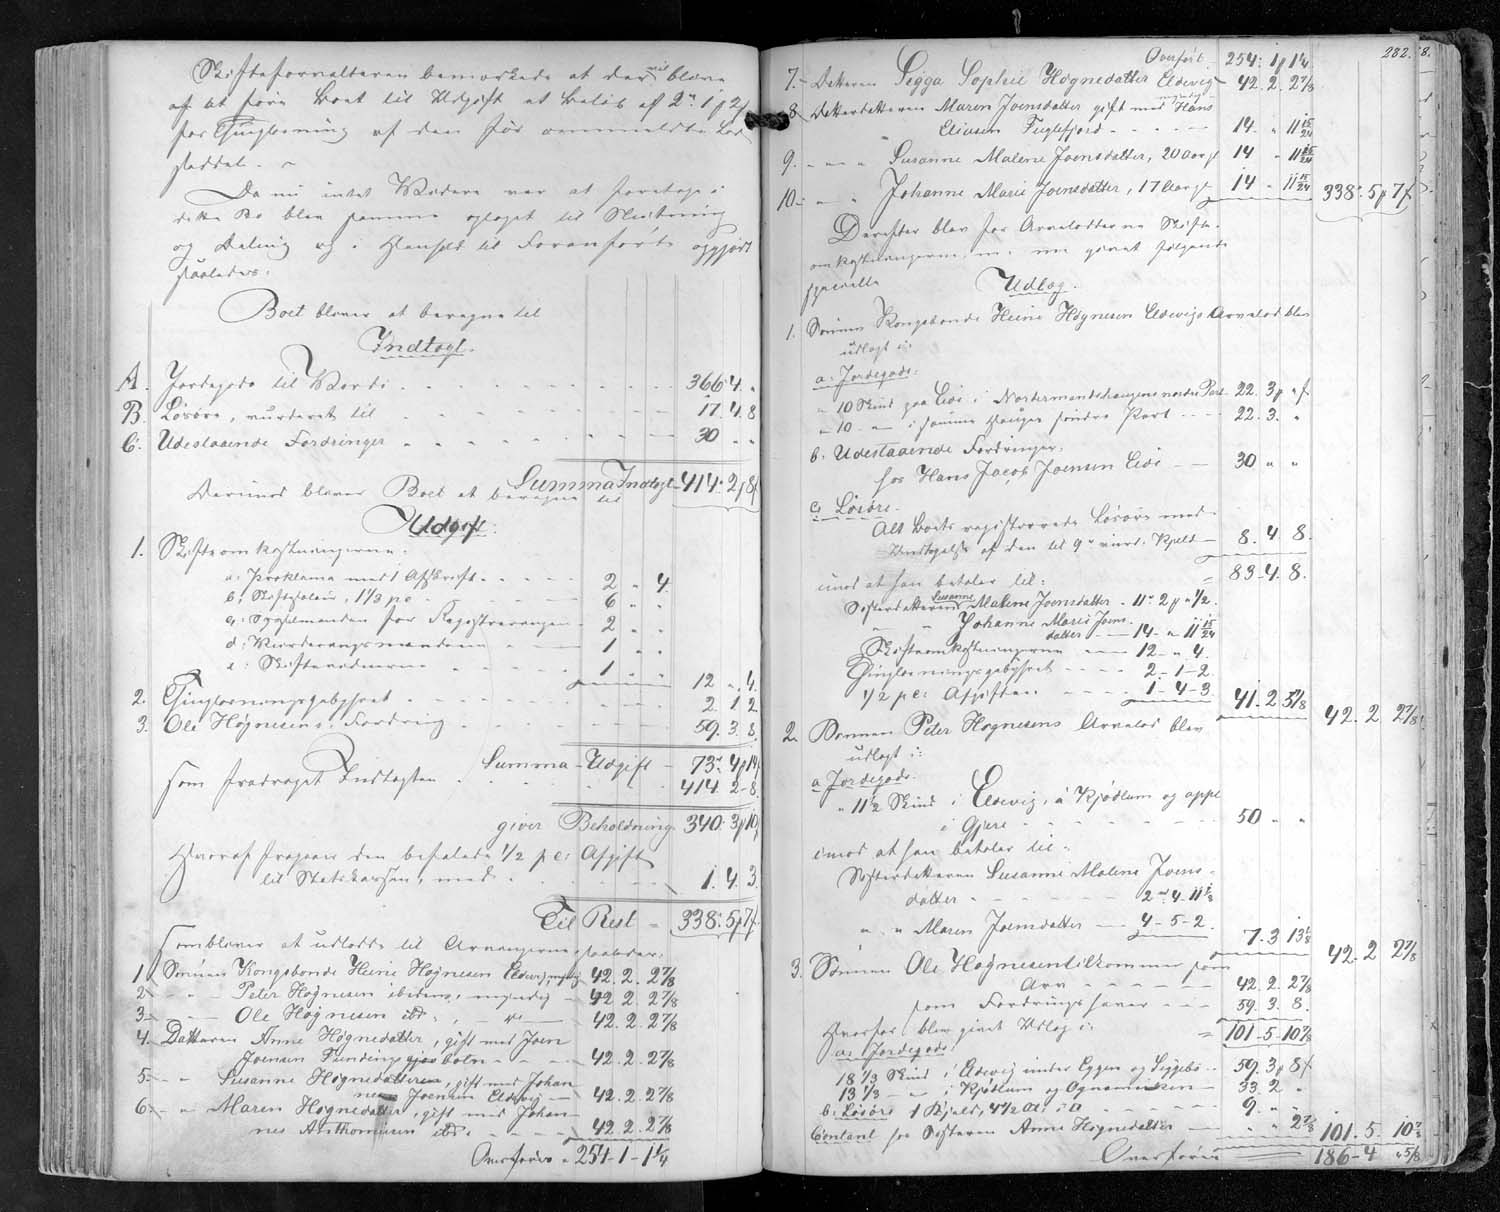 Skifteforvalteren bemærkede at der vil blive
af at føre Boet til Udgift et Beløb af 2 rd 1 p 2 f
for Thinglæsning af den før ommeldte
Da nu intet Videre var at foretage i
dette Bo blev samme optaget til Slutning
og Deling og i Henhold til Foranførte opgjort
saaledes:
Boet bliver at beregne til
Indtægt.
A. Jordegods til Værdi 366. 4. "
B. Løsøre, vurderet til 17. 4. 8
C. Udestaaende Fordringer 30 " "
Summa Indtægt 414. 2 p 8 f
Derimod bliver Boet at beregne til
Udgift.
1. Skifteomkostningerne:
a: Proklama med 1 Afskrift 2 " 4
b: Skiftesalair, 1 1/3 pc 6 " "
c: Sysselmanden for Registreringen 2 " "
d: Vurderingsmændene 1 " "
e: Skiftevidnerne 1 " "
12 " 4.
2. Thinglæsningsgebyhret 2 1 2
3. Ole Høgnesens Fordring 59. 3. 8
Summa Udgift 73. 4 p 14
som fradraget Indtægten 414. 2 - 8.
giver Beholdning 340. 3 p 10
Hvoraf fragaaer den befalede 1/2 pc: Afgift
til Statskassen, med 1. 4. 3.
Til Rest 338. 5 p 7 f
som bliver at udlodde til Arvingerne saaledes:
1. Sønnen Kongsbonde Heine Høgnesen Eldevig, myndig 42. 2. 2 7/8
2. " - Peter Høgnesen ibidem, myndig 42 2. 2 7/8
3. " - Ole Høgnesen ibd: 42. 2. 2 7/8
4. Datteren Anne Høgnedatter, gift med Joen
Joensen Fundingsbotn 42. 2. 2 7/8
5. - " Susanne Høgnedatter, gift med Johan
nes Joensen Eldevig 42. 2. 2 7/8
6. - " Maren Høgnedatter, gift med Johan
nes Anthoniusen ibd: 42. 2. 2 7/8
Overføres 254 - 1 - 1 1/4
282.
Overført 254. 1 p 1 1/4
7. - Datteren Sigga Sophie Høgnedatter Eldevig 42. 2. 2 7/8
8. Datterdatteren Maren Joensdatter gift med Hans
Eliasen Fuglefjord 14. " 11 15/24
9. - " - " Susanne Malene Joensdatter, 20 Aar gl 14 " 11 15/24
10. - " Johanne Marie Joensdatter, 17 Aar gl 14 " 11 15/24 338. 5 p 7 f
Derefter blev for Arvelodderne Skifte-
omkostningerne m. m. givet følgende
specielle Udlæg.
1. Sønnen Kongsbonde Heine Høgnesen Eldevigs Arvelod blev
udlagt i:
a: Jordegods:
" 10 Skind paa Eidi i Nordermandshaugens nordre Part 22. 3 p " f
" 10 - " - i samme Hauges søndre Part 22. 3. "
b: Udestaaende Fordringer:
hos Hans Jacob Joensen Eidi 30 " "
c: Løsøre.
Alt Boets registrerede Løsøre med
Undtagelse af den til 9 vurd: Kjeld 8. 4 8.
83 - 4. 8.
imod at han betaler til:
Søsterdatteren Susanne Malene Joensdatter 11 2 p " 1/2
" Johanne Marie Joens-
datter 14 " 11 15/24
Skifteomkostningerne 12 - " 4.
Thinglæsningsgebyhret 2 - 1 - 2
1/2 pc: Afgiften 1 - 4 - 3 41. 2 5 1/8 42. 2 2 7/8
2. Sønnen Peter Høgnesens Arvelod blev
udlagt i:
a Jordegods.
" 11 1/2 Skind i Eldevig, á Kjødlum og
i Gjere 50 " "
imod at han betaler til:
Søsterdatteren Susanne Malene Joens-
datter 2. 4. 11 1/8
" " Maren Joensdatter 4 - 5 - 2. 7. 3 13 1/8 42. 2 2 7/8
3. Sønnen Ole Høgnesen tilkommer som
Arv 42. 2. 2 7/8
som Fordringshaver 59. 3. 8.
101 - 5 - 10 7/8
Hvorfor blev givet Udlæg i:
a: Jordegods:
18 1/3 Skind i Eldevig under Eggen og 59. 3 p 8 f
13 1/3 - " - i Kjødlum og 33. 2 "
b: Løsøre 1 Kjeld, 4 1/2 Al: i □ 9. " "
Contant hos Søsteren Anne Høgnedatter " " 2 7/8 101. 5. 10 7/8
Overføres 186 - 4 " 5/8